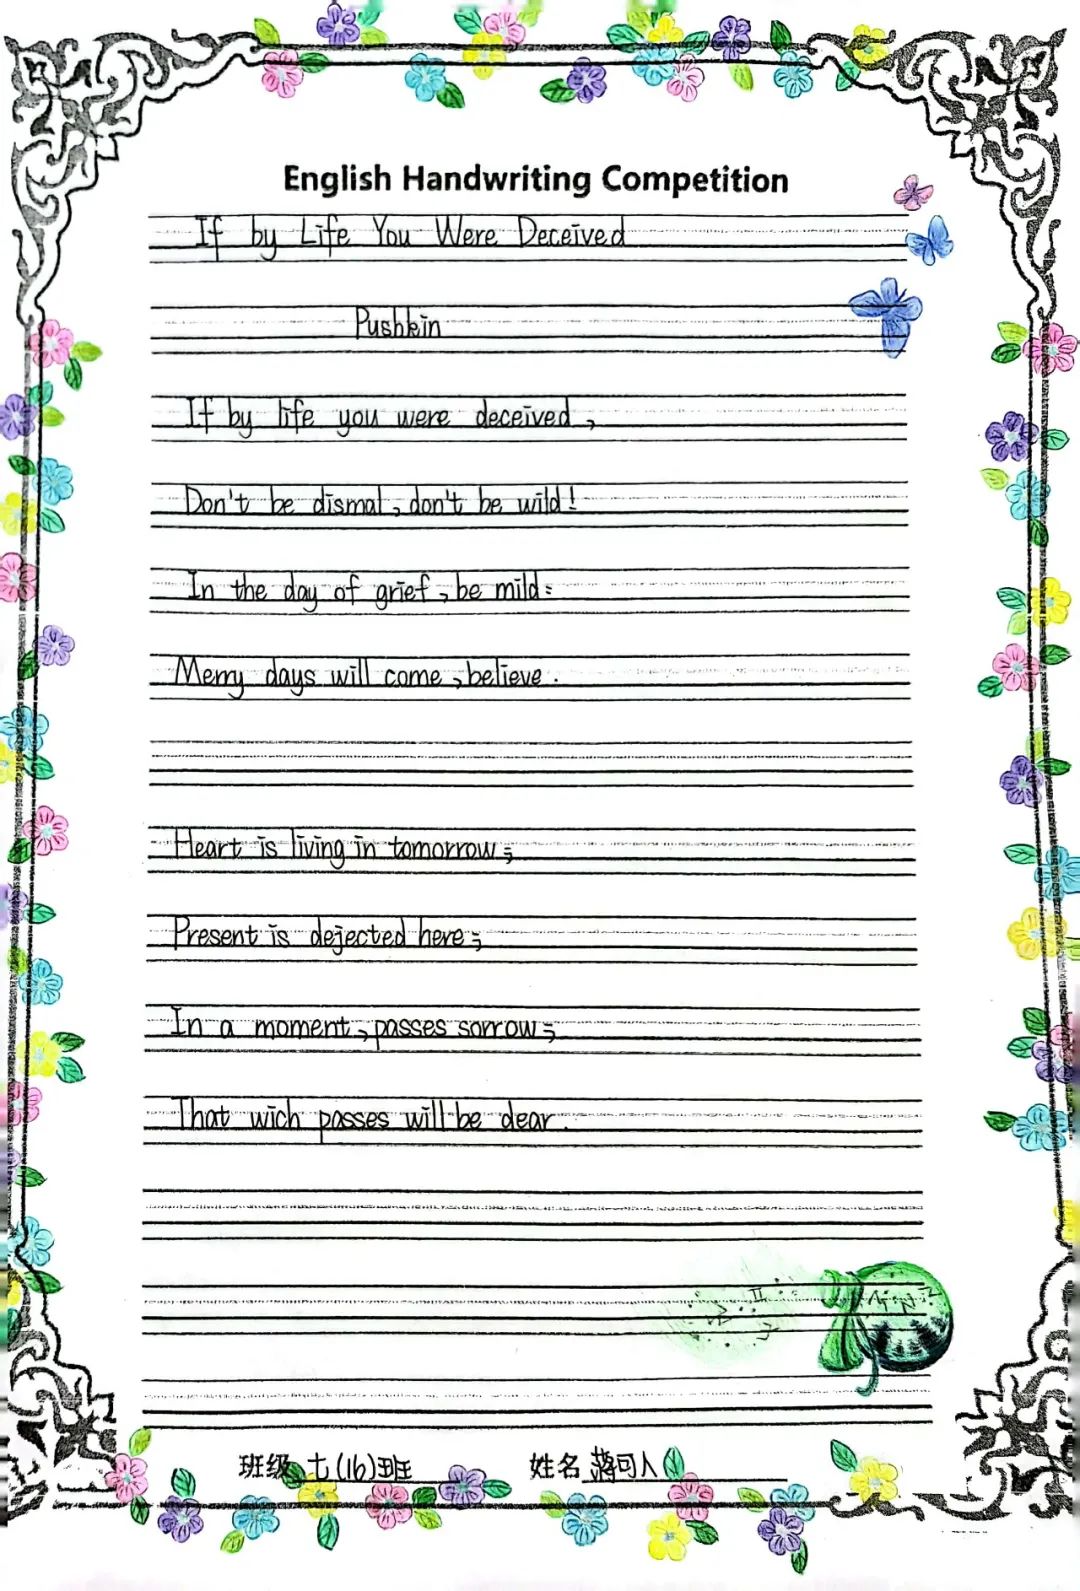 English Handwriting Competition
If by Life You Were Deceived
Pushkin
If by life you were deceived,
Don't be dismal, don't be wild!
In the day of grief, be mild:
Merry days will come, believe.
Heart is living in tomorrow;
Present is dejected here;
In a moment, passes sorrow;
That wich passes will be dear.
班级 七(16)班 姓名 蒋可人